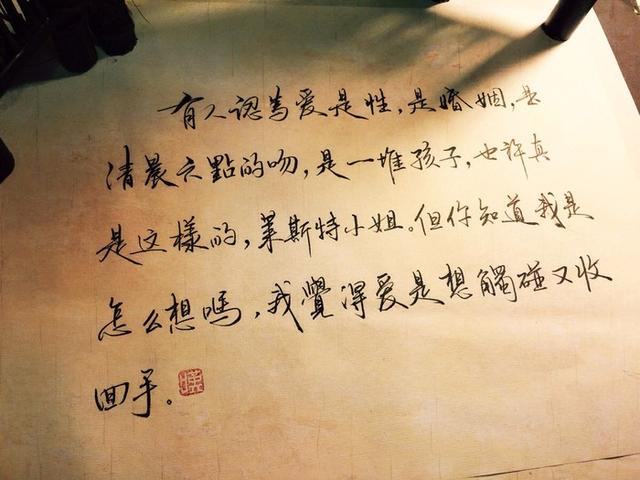 有人認為爱是性，是婚姻，是
清晨六點的吻，是一堆孩子，也许真
是这樣的，莱斯特小姐。但你知道我是
怎么想嗎，我覺得爱是想觸碰又收
回手。